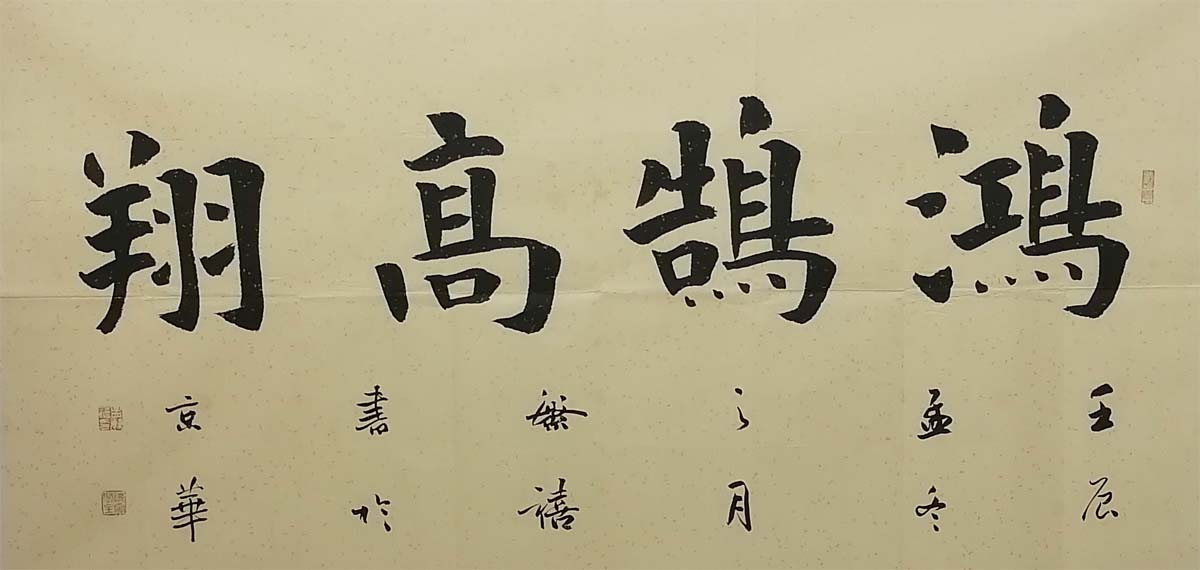 鴻鵠高翔
壬辰
孟冬
之月
繁禧
書於
京華